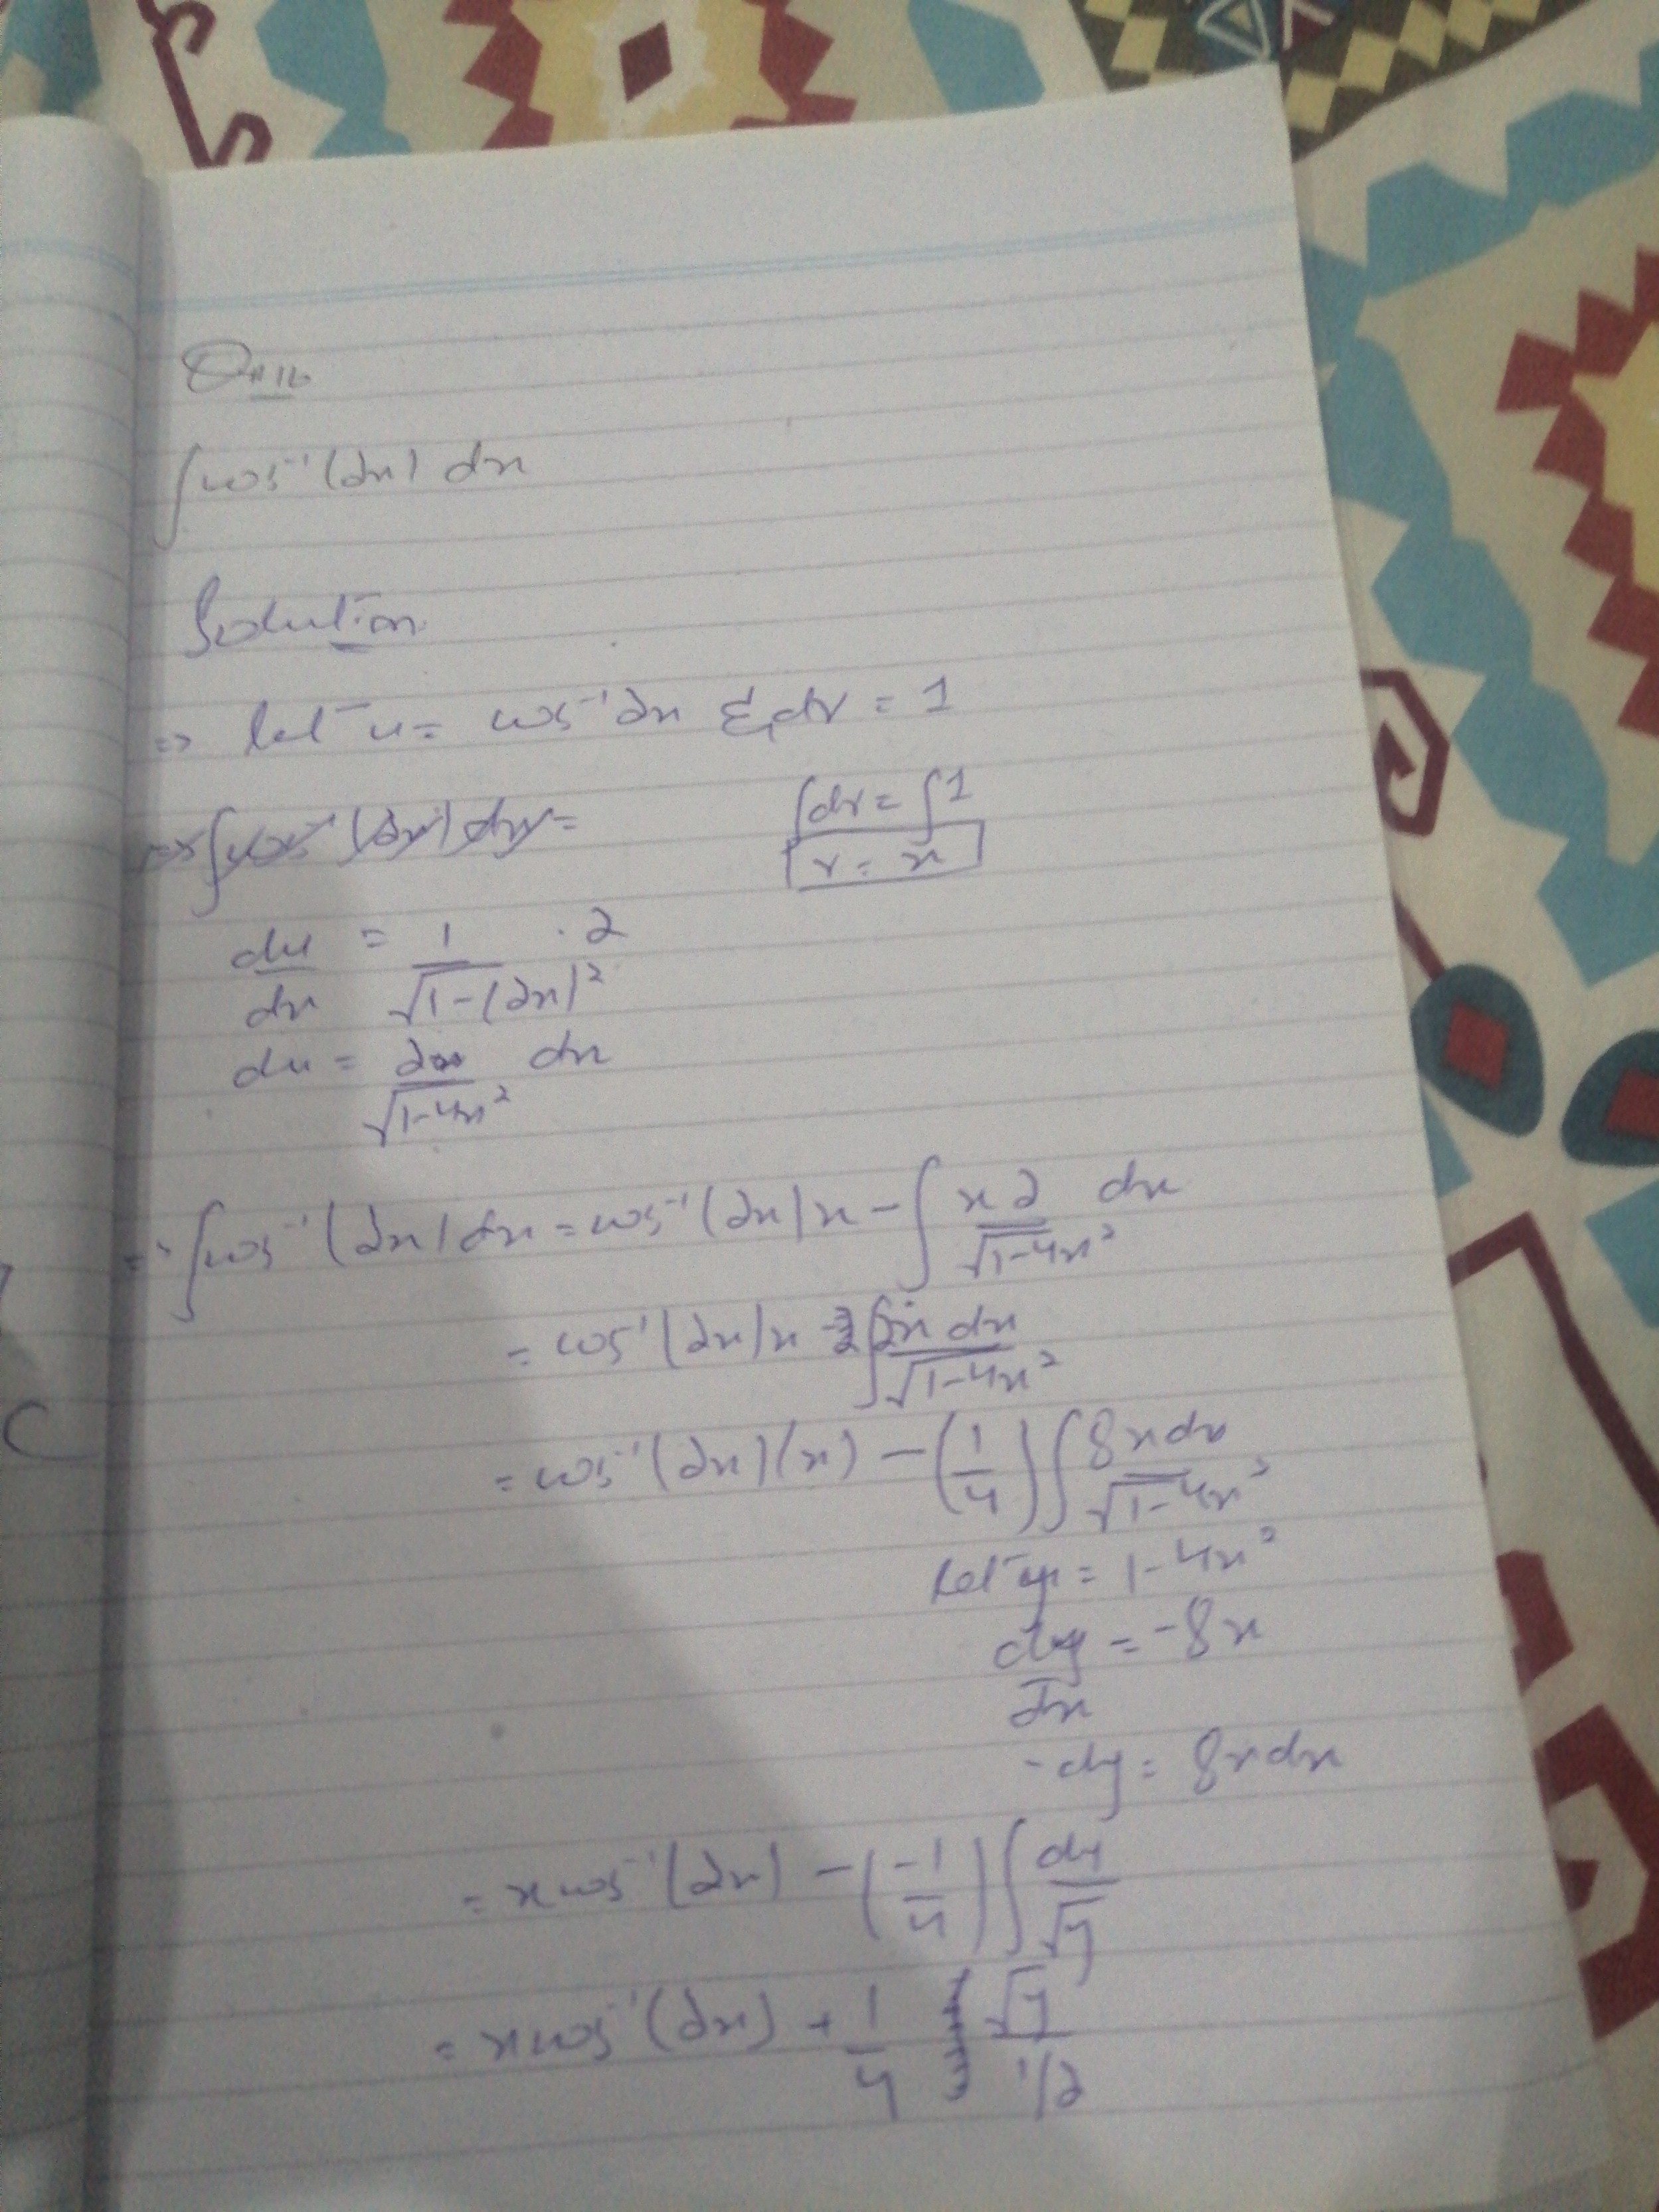 Q#16
∫cos⁻¹(2x) dx
Solution
=> let u = cos⁻¹2x & dv = 1
=> ∫cos⁻¹(2x) dx =
∫dv = ∫1
v = x
du/dx = 1/√1-(2x)² · 2
du = 2/√1-4x² dx
=> ∫cos⁻¹(2x) dx = cos⁻¹(2x)x - ∫ x2/√1-4x² dx
= cos⁻¹(2x)x - ∫ 2x dx/√1-4x²
= cos⁻¹(2x)(x) - (1/4) ∫ 8x dx/√1-4x²
Let y = 1-4x²
dy/dx = -8x
-dy = 8x dx
= x cos⁻¹(2x) - (-1/4) ∫ dy/√y
= x cos⁻¹(2x) + 1/4 √y/1/2